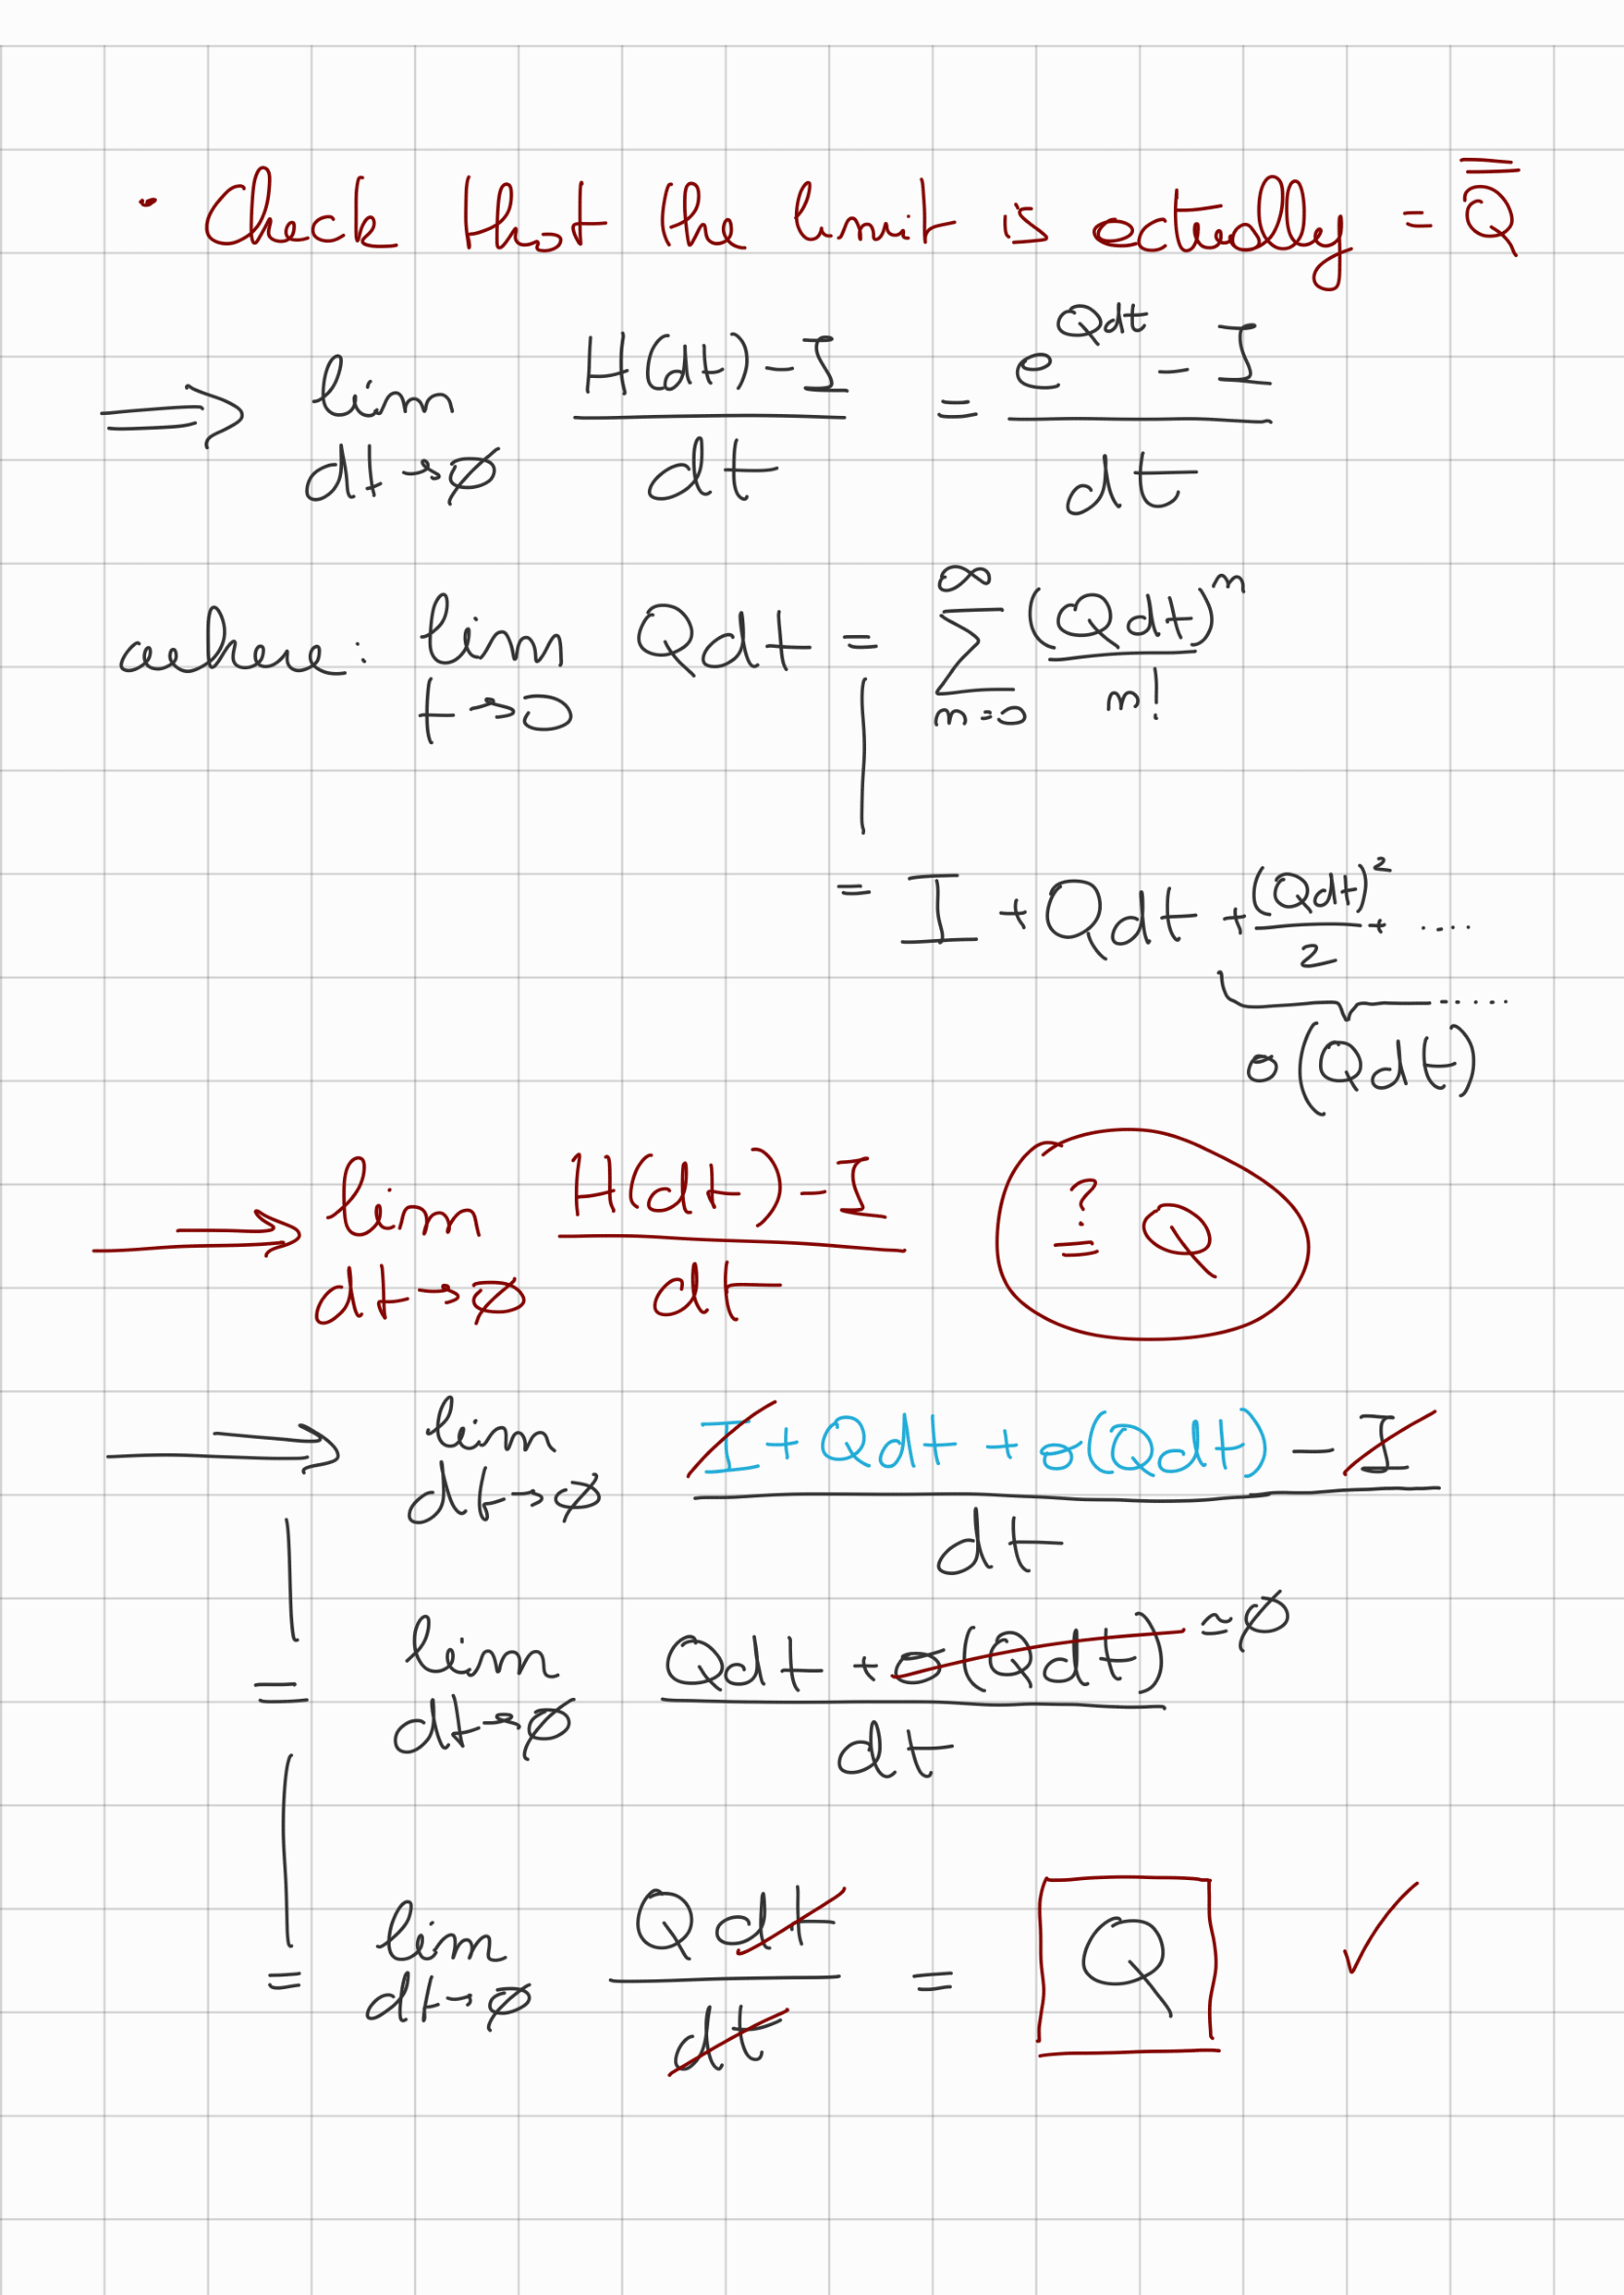 · Check that the limit is actually = Q̿
⟹ lim_{dt→∅} (H(dt) - I)/dt = (e^{Qdt} - I)/dt
where: lim_{t→0} Qdt = ∑_{n=0}^{∞} (Qdt)^n / n!
= I + Qdt + (Qdt)^2/2 + ....
o(Qdt)
⟹ lim_{dt→∅} (H(dt) - I)/dt ≟ Q
⟹ lim_{dt→∅} (I + Qdt + o(Qdt) - I)/dt
= lim_{dt→∅} (Qdt + o(Qdt))/dt ≃∅
= lim_{dt→∅} Qdt/dt = Q ✓